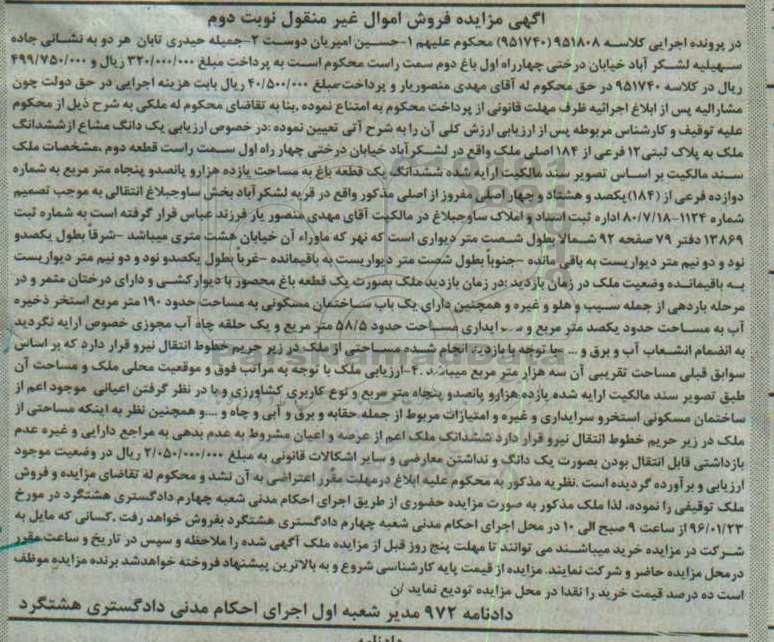 آگهی مزایده فروش اموال غیر منقول نوبت دوم
در پرونده اجرایی کلاسه ۹۵۱۸۰۸ (۹۵۱۷۴۰) محکوم علیهم ۱-حسین امیریان دوست ۲-جمیله حیدری تابان هر دو به نشانی جاده
سهیلیه لشکر آباد خیابان درختی چهارراه اول باغ دوم سمت راست محکوم است به پرداخت مبلغ ۳۲۰/۰۰۰/۰۰۰ ریال و ۴۹۹/۷۵۰/۰۰۰
ریال در کلاسه ۹۵۱۷۴۰ در حق محکوم له آقای مهدی منصوریار و پرداخت مبلغ ۴۰/۵۰۰/۰۰۰ ریال بابت هزینه اجرایی در حق دولت چون
مشارالیه پس از ابلاغ اجرائیه ظرف مهلت قانونی از پرداخت محکوم به امتناع نموده .بنا به تقاضای محکوم له ملکی به شرح ذیل از محکوم
علیه توقیف و کارشناس مربوطه پس از ارزیابی ارزش کلی آن را به شرح آتی تعیین نموده :در خصوص ارزیابی یک دانگ مشاع ازششدانگ
ملک به پلاک ثبتی۱۲ فرعی از ۱۸۴ اصلی ملک واقع در لشکرآباد خیابان درختی چهار راه اول سمت راست قطعه دوم .مشخصات ملک
سند مالکیت بر اساس تصویر سند مالکیت ارایه شده ششدانگ یک قطعه باغ به مساحت یازده هزارو پانصدو پنجاه متر مربع به شماره
دوازده فرعی از (۱۸۴) یکصد و هشتاد و چهار اصلی مفروز از اصلی مذکور واقع در قریه لشکرآباد بخش ساوجبلاغ انتقالی به موجب تصمیم
شماره ۱۱۲۴-۸۰/۷/۱۸ اداره ثبت اسناد و املاک ساوجبلاغ در مالکیت آقای مهدی منصور یار فرزند عباس قرار گرفته است به شماره ثبت
۱۳۸۶۹ دفتر ۷۹ صفحه ۹۲ شمالاً بطول شصت متر دیواری است که نهر که ماوراء آن خیابان هشت متری میباشد -شرقاً بطول یکصدو
نود و دو نیم متر دیواریست به باقی مانده -جنوباً بطول شصت متر دیواریست به باقیمانده -غرباً بطول یکصدو نود و دو نیم متر دیواریست
به باقیمانده وضعیت ملک در زمان بازدید :در زمان بازدید ملک بصورت یک قطعه باغ محصور با دیوارکشی و دارای درختان مثمر و در
مرحله باردهی از جمله سیب و هلو و غیره و همچنین دارای یک باب ساختمان مسکونی به مساحت حدود ۱۹۰ متر مربع استخر ذخیره
آب به مساحت حدود یکصد متر مربع و ایداری مساحت حدود ۵۸/۵ متر مربع و یک حلقه چاه آب مجوزی خصوص ارایه نگردید
به انضمام انشعاب آب و برق و ... با توجه با بازدید انجام شده مساحتی از ملک در زیر حریم خطوط انتقال نیرو قرار دارد که بر اساس
سوابق قبلی مساحت تقریبی آن سه هزار متر مربع میباشد .۴-ارزیابی ملک با توجه به مراتب فوق و موقعیت محلی ملک و مساحت آن
طبق تصویر سند مالکیت ارایه شده یازده هزارو پانصدو پنجاه متر مربع و نوع کاربری کشاورزی و با در نظر گرفتن اعیانی موجود اعم از
ساختمان مسکونی استخرو سرایداری و غیره و امتیازات مربوط از جمله حقابه و برق و آبی و چاه و ....و همچنین نظر به اینکه مساحتی از
ملک در زیر حریم خطوط انتقال نیرو قرار دارد ششدانگ ملک اعم از عرصه و اعیان مشروط به عدم بدهی به مراجع دارایی و غیره عدم
بازداشتی قابل انتقال بودن بصورت یک دانگ و نداشتن معارضی و سایر اشکالات قانونی به مبلغ ۲/۰۵۰/۰۰۰/۰۰۰ ریال در وضعیت موجود
ارزیابی و برآورده گردیده است .نظریه مذکور به محکوم علیه ابلاغ درمهلت مقرر اعتراضی به آن نشد و محکوم له تقاضای مزایده و فروش
ملک توقیفی را نموده. لذا ملک مذکور به صورت مزایده حضوری از طریق اجرای احکام مدنی شعبه چهارم دادگستری هشتگرد در مورخ
۹۶/۰۱/۲۳ از ساعت ۹ صبح الی ۱۰ در محل اجرای احکام مدنی شعبه چهارم دادگستری هشتگرد بفروش خواهد رفت .کسانی که مایل به
شرکت در مزایده خرید میباشند می توانند تا مهلت پنج روز قبل از مزایده ملک آگهی شده را ملاحظه و سپس در تاریخ و ساعت مقرر
درمحل مزایده حاضر و شرکت نمایند. مزایده از قیمت پایه کارشناسی شروع و به بالاترین پیشنهاد فروخته خواهدشد برنده مزایده موظف
است ده درصد قیمت خرید را نقدا در محل مزایده تودیع نماید /ن
دادنامه ۹۷۲ مدیر شعبه اول اجرای احکام مدنی دادگستری هشتگرد